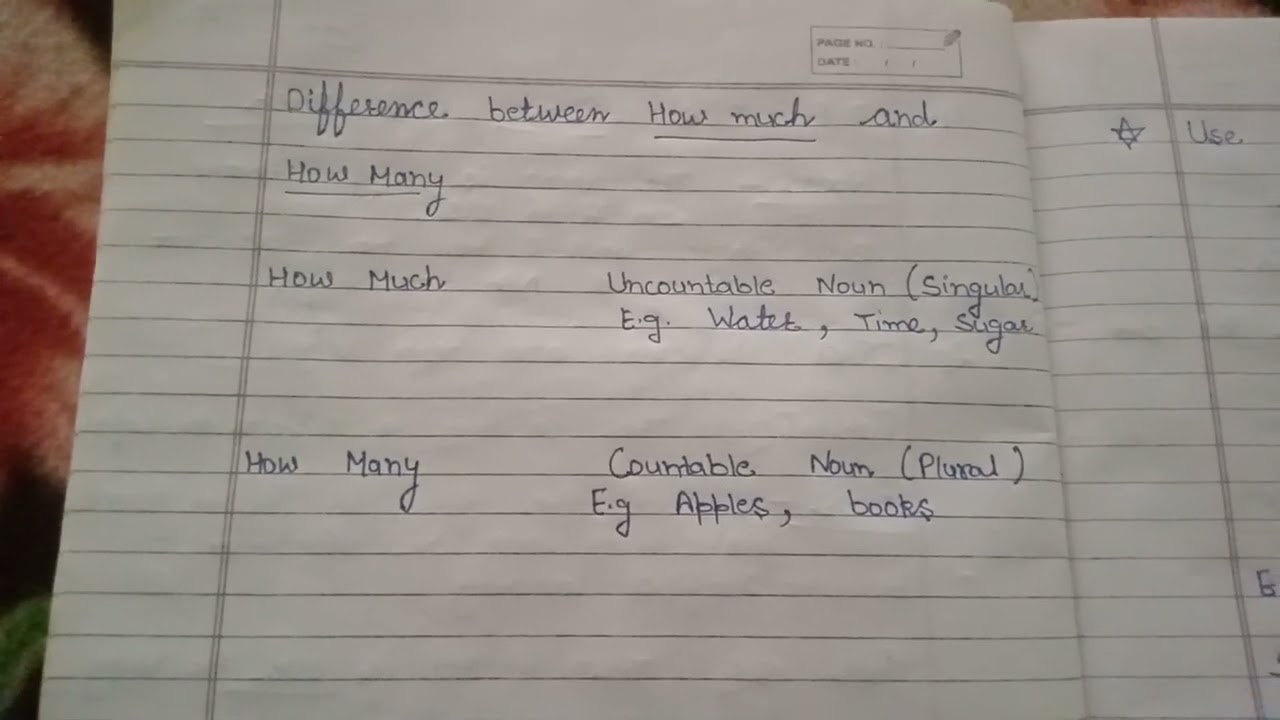 PAGE NO. :
DATE : / /
Difference between How much and
How Many
How Much Uncountable Noun (Singular)
E.g. Water, Time, Sugar
How Many Countable Noun (Plural)
E.g Apples, books
☆ Use